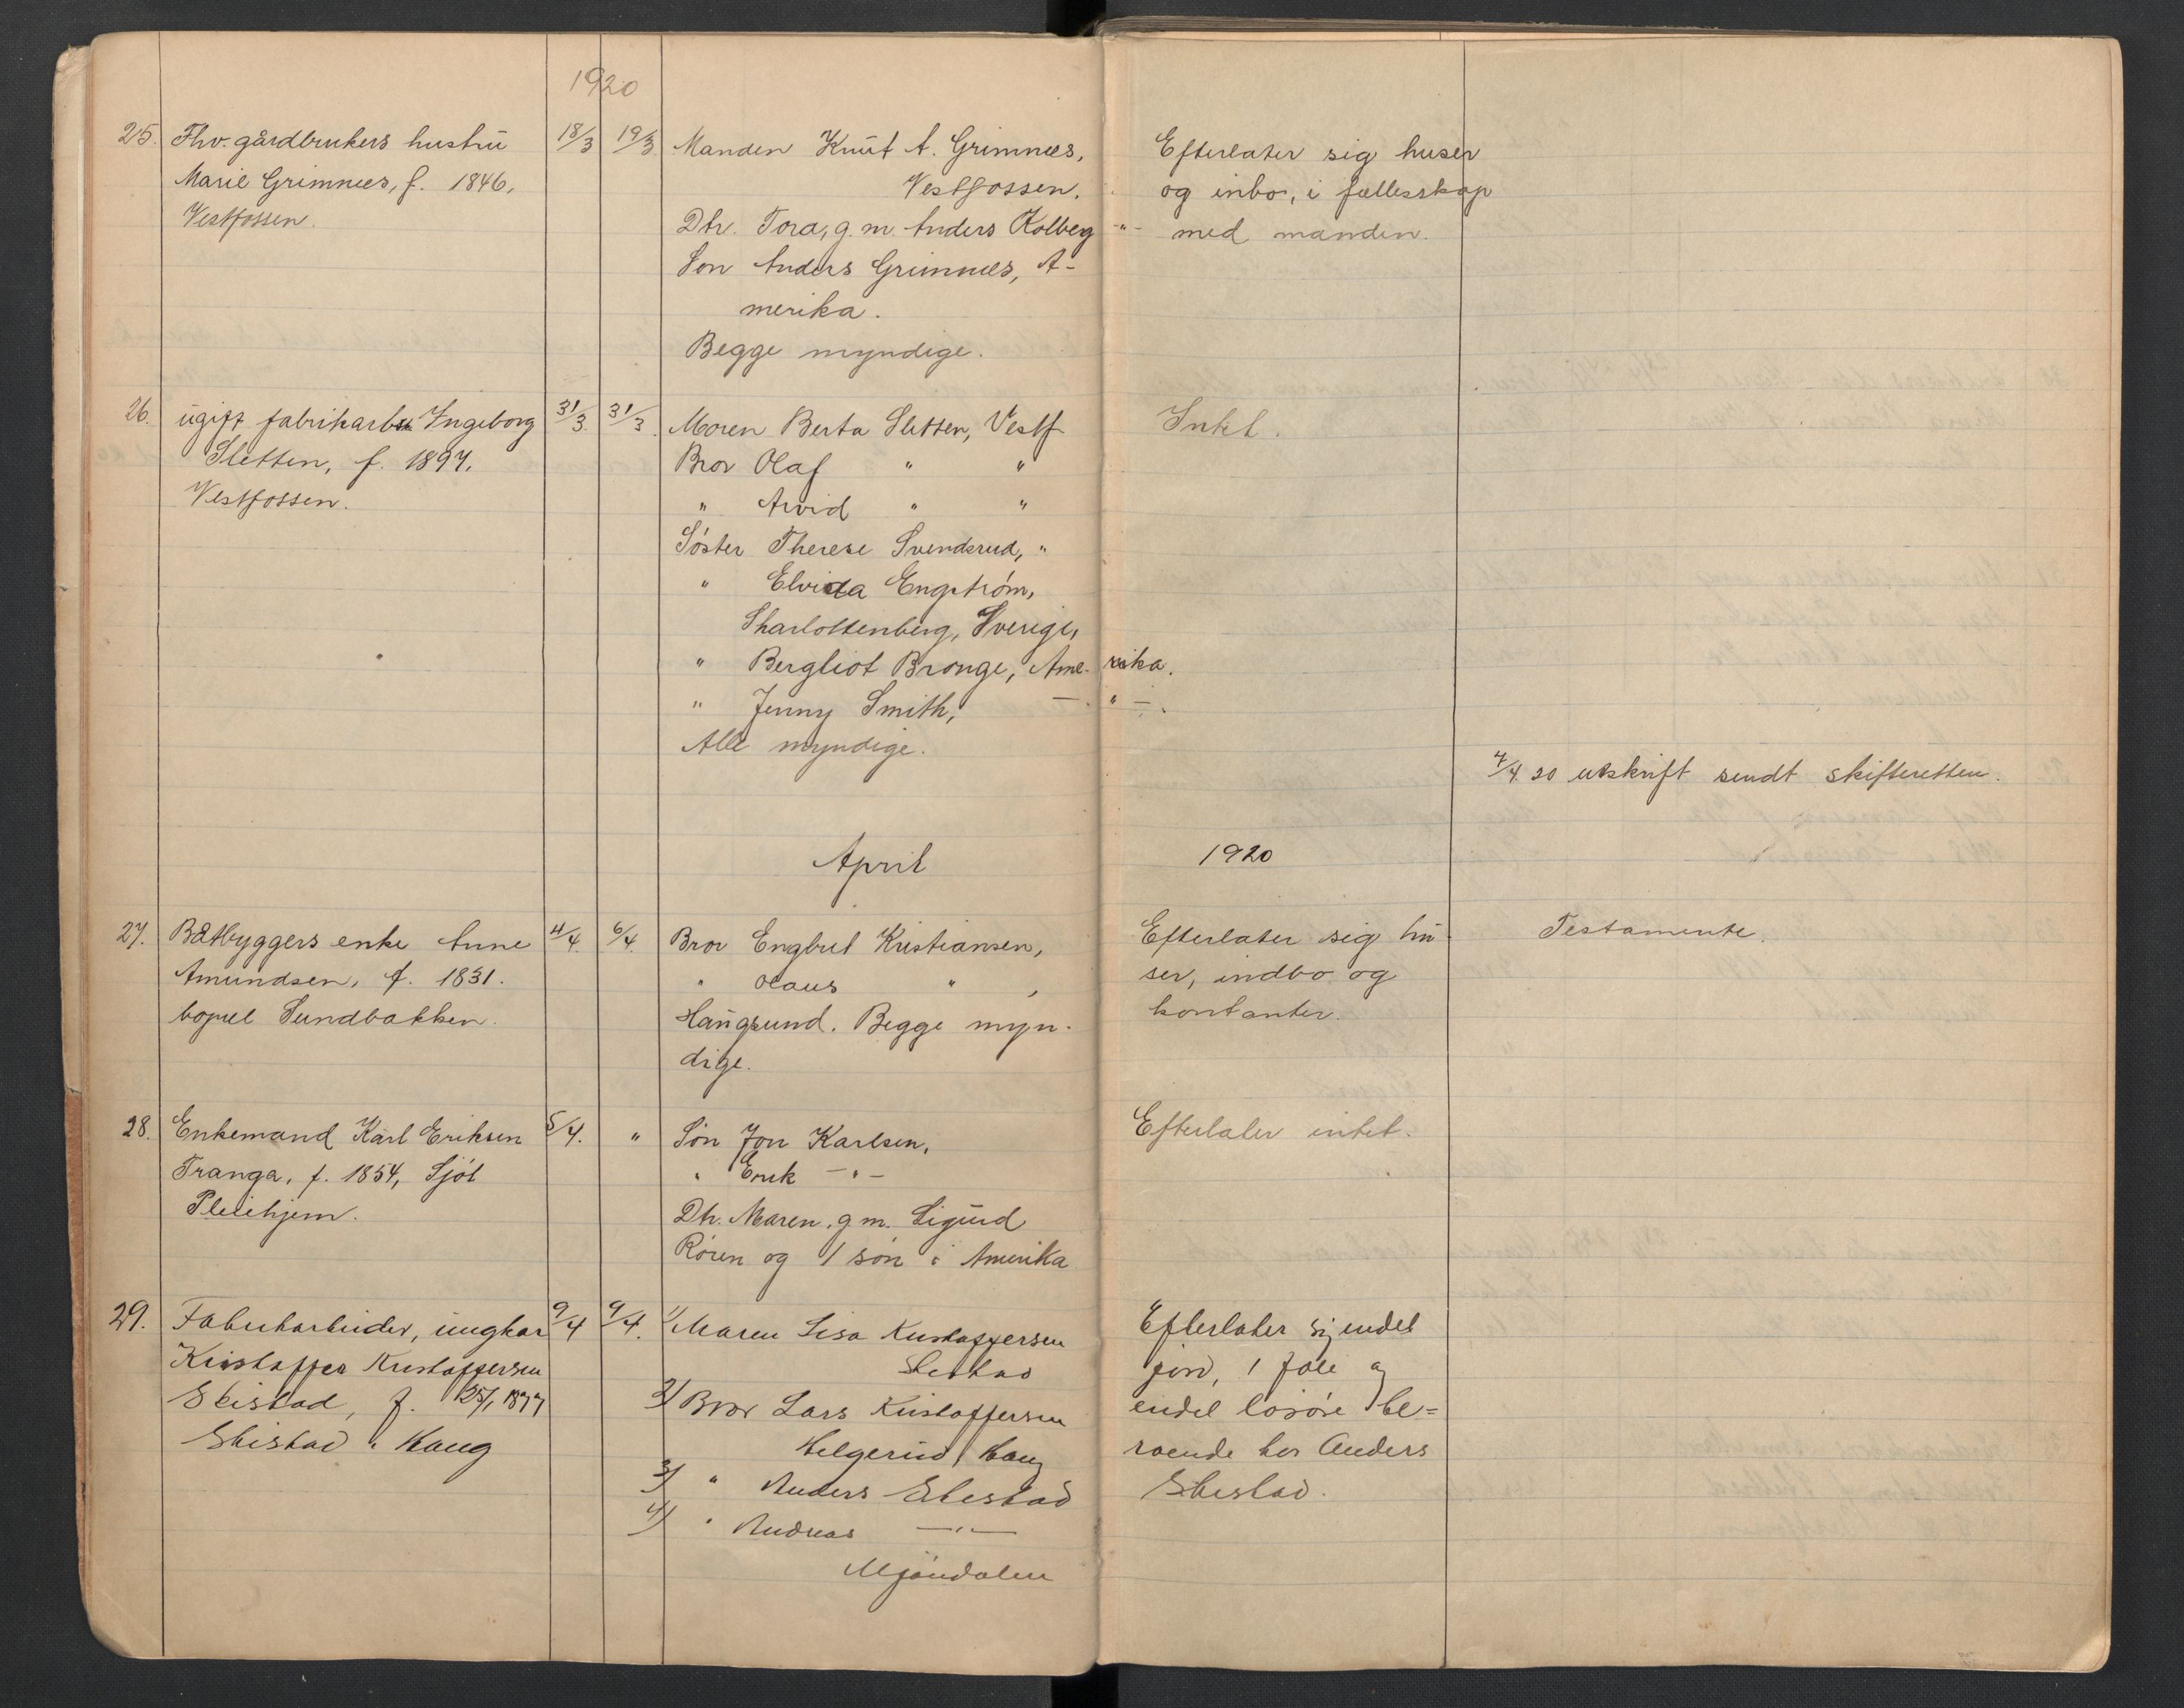 1920
25. Fhv. gårdbrukers hustru 18/3 19/3 Manden Knut A. Grimnes, Efterlater sig huser
Marie Grimnes, f. 1846, Vestfossen. og inbo, i fællesskap
Vestfossen. Dtr. Tora, g.m. Anders Kolberg -"- med manden.
Søn Anders Grimnes, A-
merika.
Begge myndige.
26. ugift fabrikarb. Ingeborg 31/3 31/3 Moren Berta Sletten, Vestf Intet.
Sletten, f. 1897. Bror Olaf " "
Vestfossen. " Arvid " "
Søster Therese Svendsrud, "
" Elvida Engstrøm,
Sharlottenberg, Sverige,
" Bergliot Bronge, Amerika.
" Jenny Smith, — " —
Alle myndige.
7/4 20 utskrift sendt skifteretten.
April 1920
27. Båtbyggers enke Anne 4/4 6/4 Bror Engbret Kristiansen, Efterlater sig hu- Testamente.
Amundsen, f. 1831. " Olaus " , ser, indbo og
bopæl Sundbakken. Haugsund. Begge myn- kontanter.
dige.
28. Enkemand Karl Eriksen 5/4. " Søn Jon Karlsen, Efterlater intet.
Tranga, f. 1854, Sjøl " Erik -"-
Pleiehjem. Dtr. Maren, g.m. Sigurd
Røren og 1 søn i Amerika
29. Fabrikarbeider, ungkar 9/4 9/4. 1/ Maren Lisa Kristoffersen Efterlater sig endel
Kristoffer Kristoffersen Stestad jord, 1 fole og
Stestad, f. 25/1 1877 2/ Bror Lars Kristoffersen endel løsøre be=
Stestad i Haug Helgerud i Haug roende hos Anders
3/ " Anders Stestad Stestad.
4/ " Andreas —"—
Mjøndalen